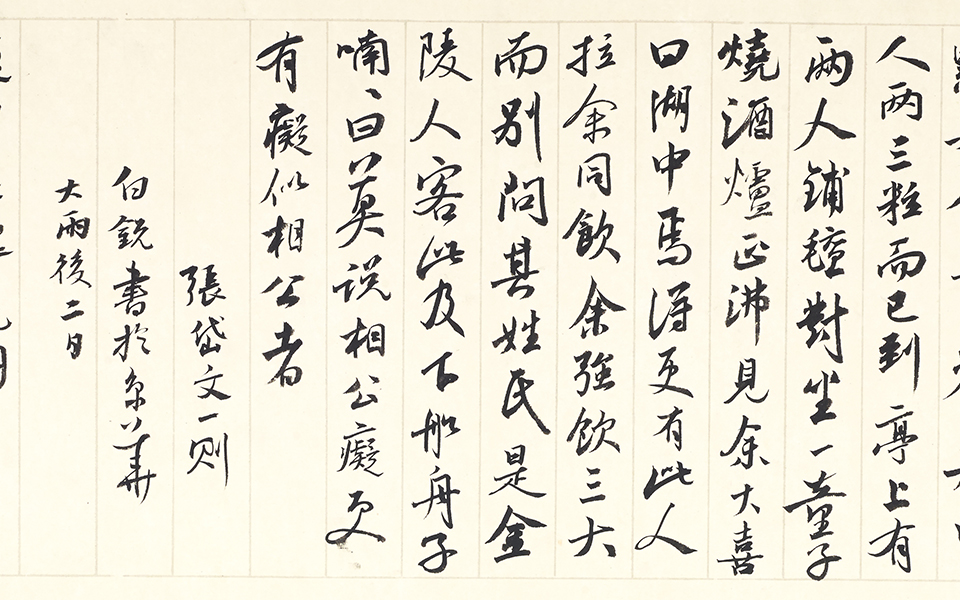 人两三粒而已到亭上有
兩人鋪氈對坐一童子
燒酒爐正沸見余大喜
曰湖中焉得更有此人
拉余同飲余強飲三大
而别問其姓氏是金
陵人客此及下船舟子
喃〻曰莫说相公癡更
有癡似相公者
張岱文一则
白銳書於京華
大雨後二日